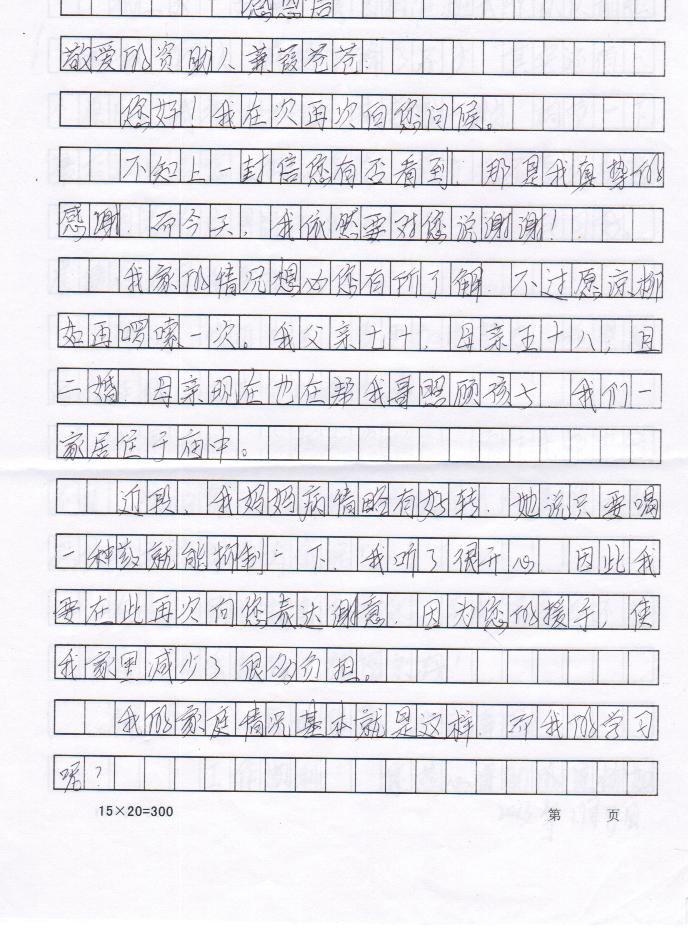 感恩信
敬爱的资助人蒹葭苍苍：
您好！我在次再次向您问候。
不知上一封信您有否看到，那是我真挚的
感谢，而今天，我依然要对您说谢谢！
我家的情况想必您有所了解，不过愿谅
如再啰嗦一次。我父亲七十，母亲五十八，且
二婚，母亲现在也在帮我哥照顾孩子，我们一
家居住于病中。
近段，我妈妈病情略有好转，她说只要喝
一种药就能抑制一下，我听了很开心，因此我
要在此再次向您表达谢意，因为您的援手，使
我家里减少了很多负担。
我的家庭情况基本就是这样，而我的学习
呢？
15×20=300
第 页